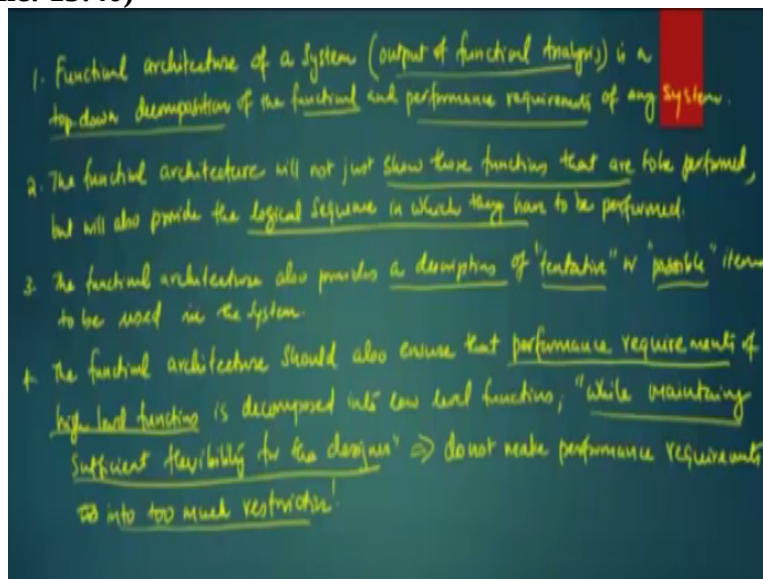 1. Functional architecture of a system (output of functional Analysis) is a
top-down decomposition of the functional and performance requirements of any system.
2. The functional architecture will not just show those functions that are to be performed,
but will also provide the logical sequence in which they have to be performed.
3. The functional architecture also provides a description of "tentative" or "possible" items
to be used in the system.
4. The functional architecture should also ensure that performance requirements of
high level functions is decomposed into low level functions, "while maintaining
sufficient flexibility for the designer" ⇒ do not make performance requirements
into too much restriction!